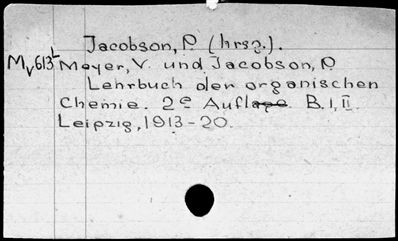 Jacobson, P. (hrsg.).
Mv613L Meyer, V. und Jacobson, P.
Lehrbuch der organischen
Chemie. 2e Auflage. B. I, II.
Leipzig, 1913-20.